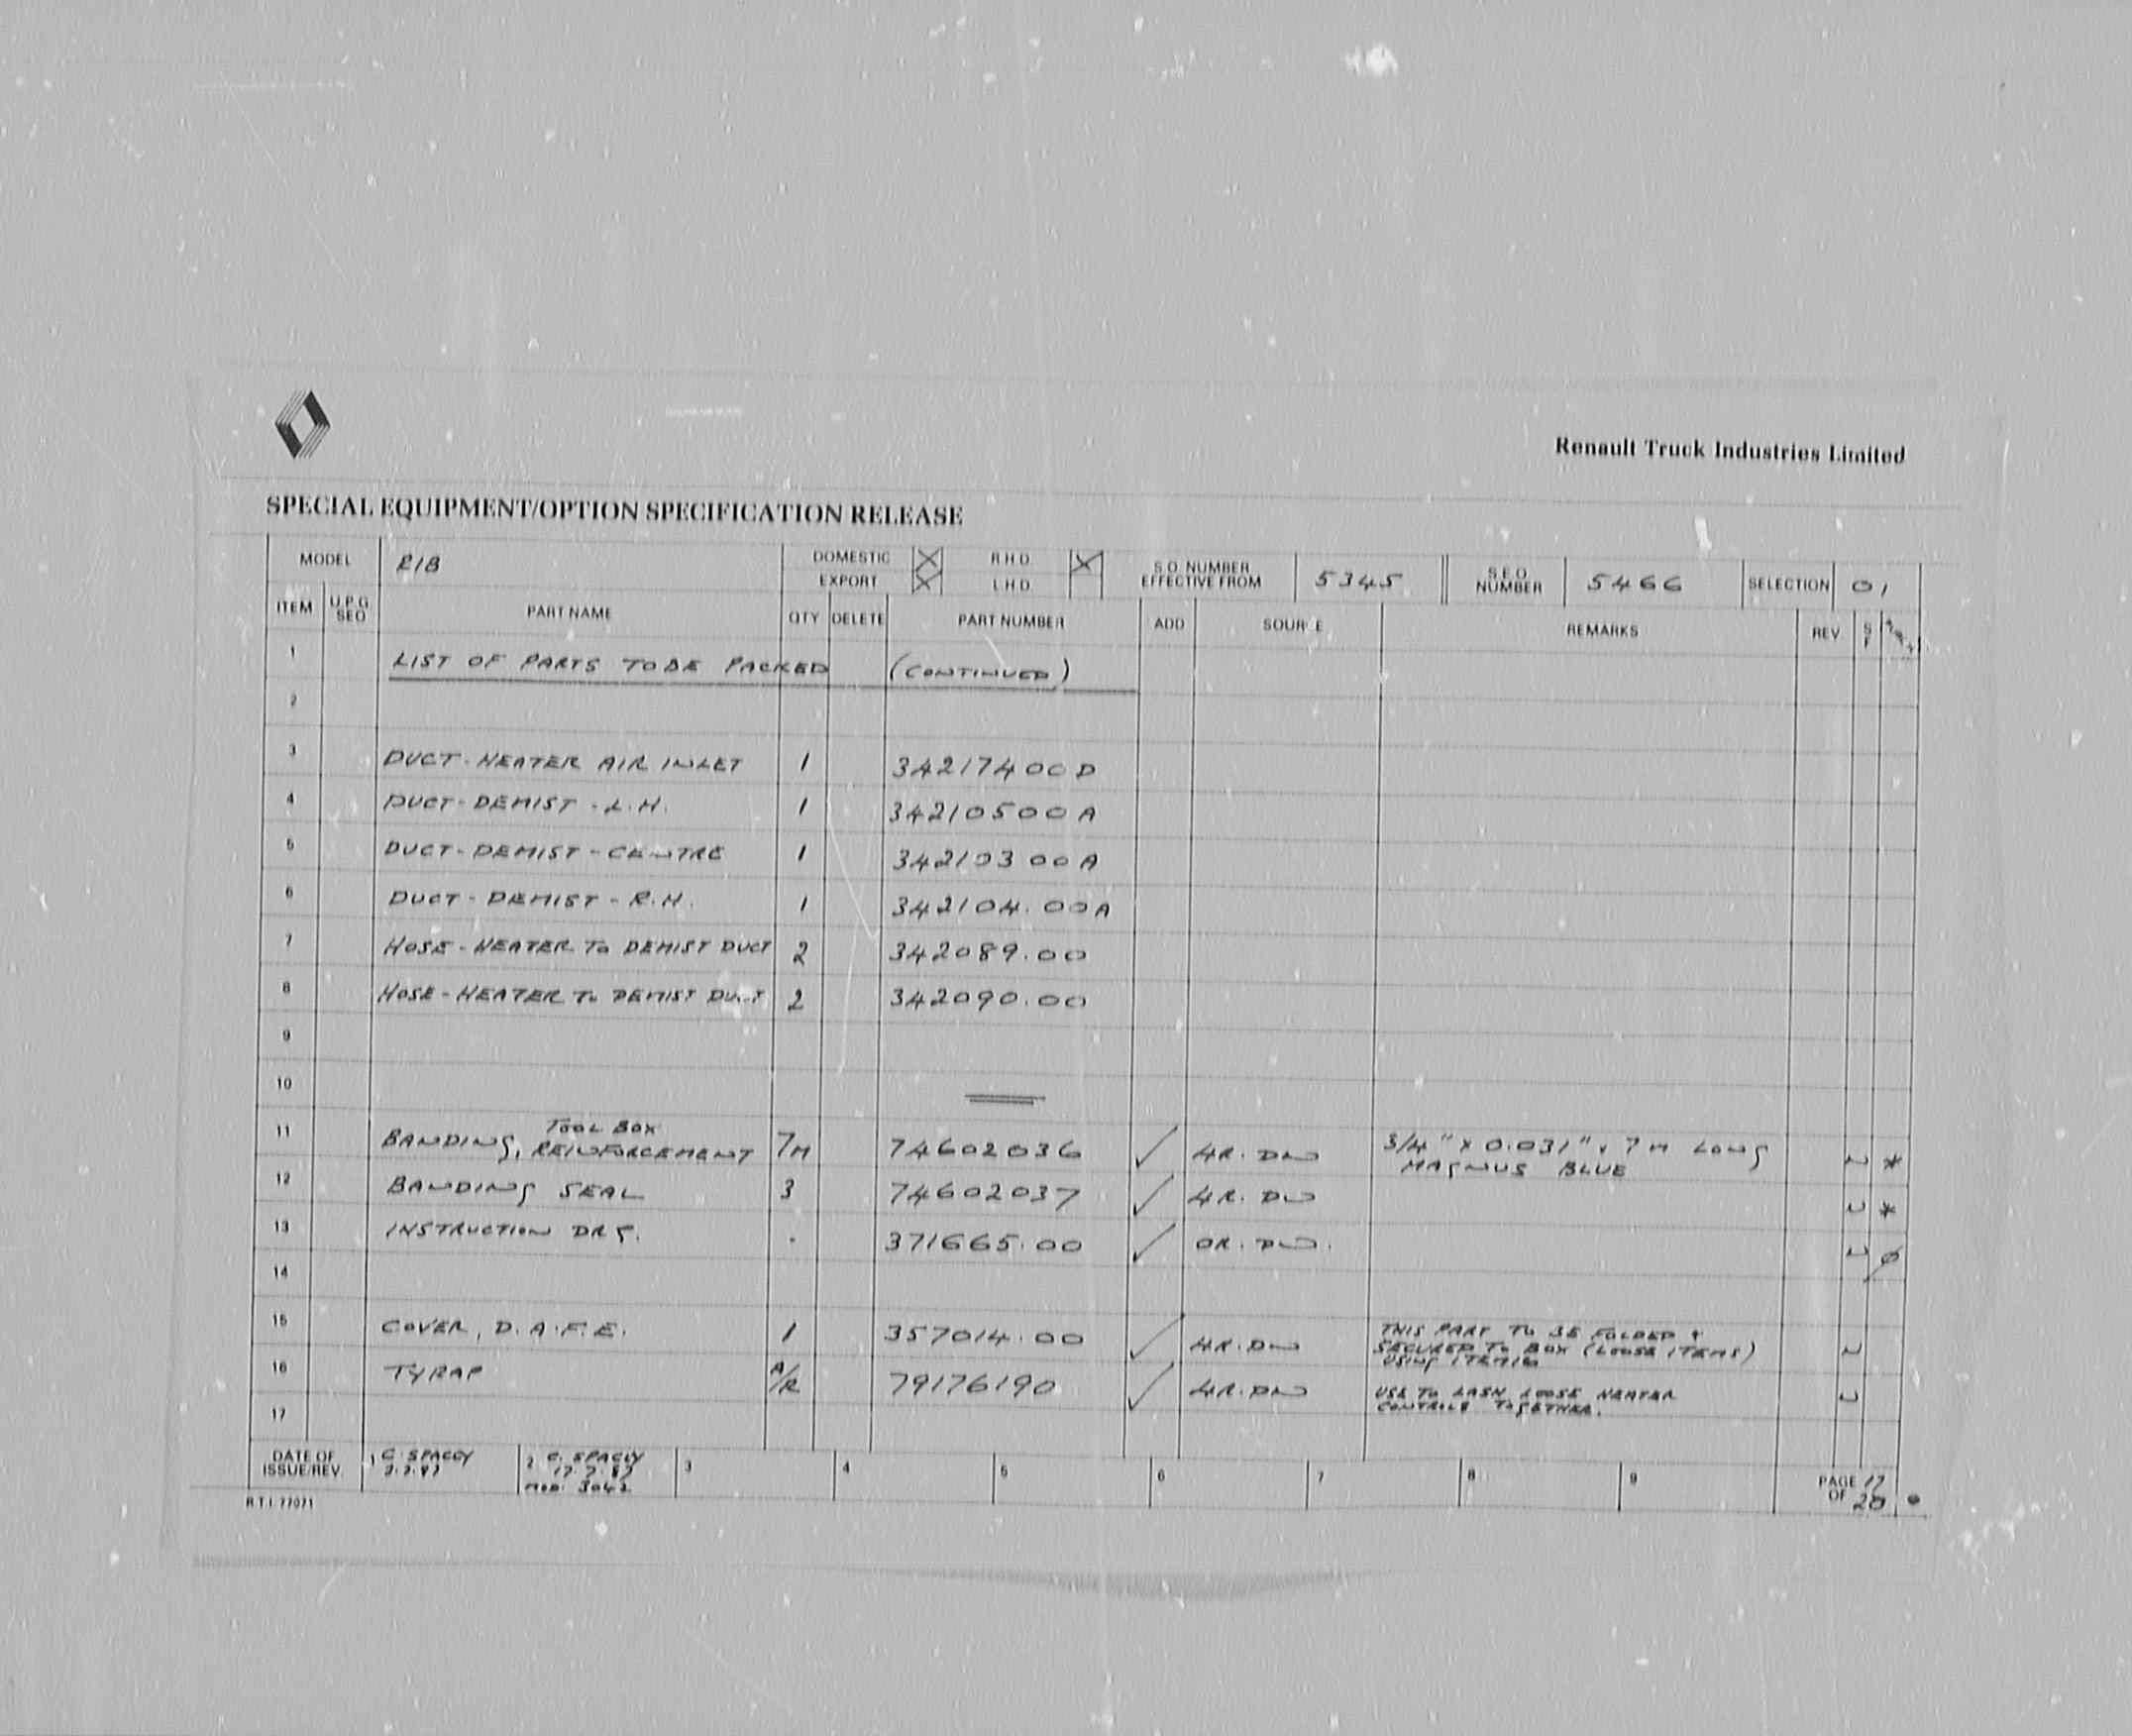 Renault Truck Industries Limited
SPECIAL EQUIPMENT/OPTION SPECIFICATION RELEASE
MODEL R1B DOMESTIC X R.H.D. X S.O. NUMBER EFFECTIVE FROM 5345 S.E.O. NUMBER 5466 SELECTION 01
EXPORT X L.H.D.
ITEM U.P.G. SEQ PART NAME QTY DELETE PART NUMBER ADD SOURCE REMARKS REV S F
1 LIST OF PARTS TO BE PACKED (CONTINUED)
2
3 DUCT-HEATER AIR INLET 1 34217400D
4 DUCT-DEMIST-L.H. 1 34210500A
5 DUCT-DEMIST-CENTRE 1 34210300A
6 DUCT-DEMIST-R.H. 1 342104.00A
7 HOSE-HEATER TO DEMIST DUCT 2 342089.00
8 HOSE-HEATER TO DEMIST DUCT 2 342090.00
9
10
11 BANDING, TOOL BOX REINFORCEMENT 7M 74602036 ✓ 4R. DN 3/4" x 0.031" x 7M LONG
MAGNUS BLUE 2 *
12 BANDING SEAL 3 74602037 ✓ 4R. DN 2 *
13 INSTRUCTION DRG. . 371665.00 ✓ OR. DN. 2 ø
14
15 COVER, D.A.F.E. 1 357014.00 ✓ 4R.DN THIS PART TO BE FOLDED &
SECURED TO BOX (LOOSE ITEMS)
USING ITEM 16 2
16 TYRAP A/R 79176190 ✓ 4R.DN USE TO LASH LOOSE HEATER
CONTROLS TOGETHER. 2
17
DATE OF ISSUE/REV. 1 C. SPACEY 2 C. SPACEY 3 4 5 6 7 8 9 PAGE 17
17.7.87 OF 20
MOD. 3042
R.T.I. 77071